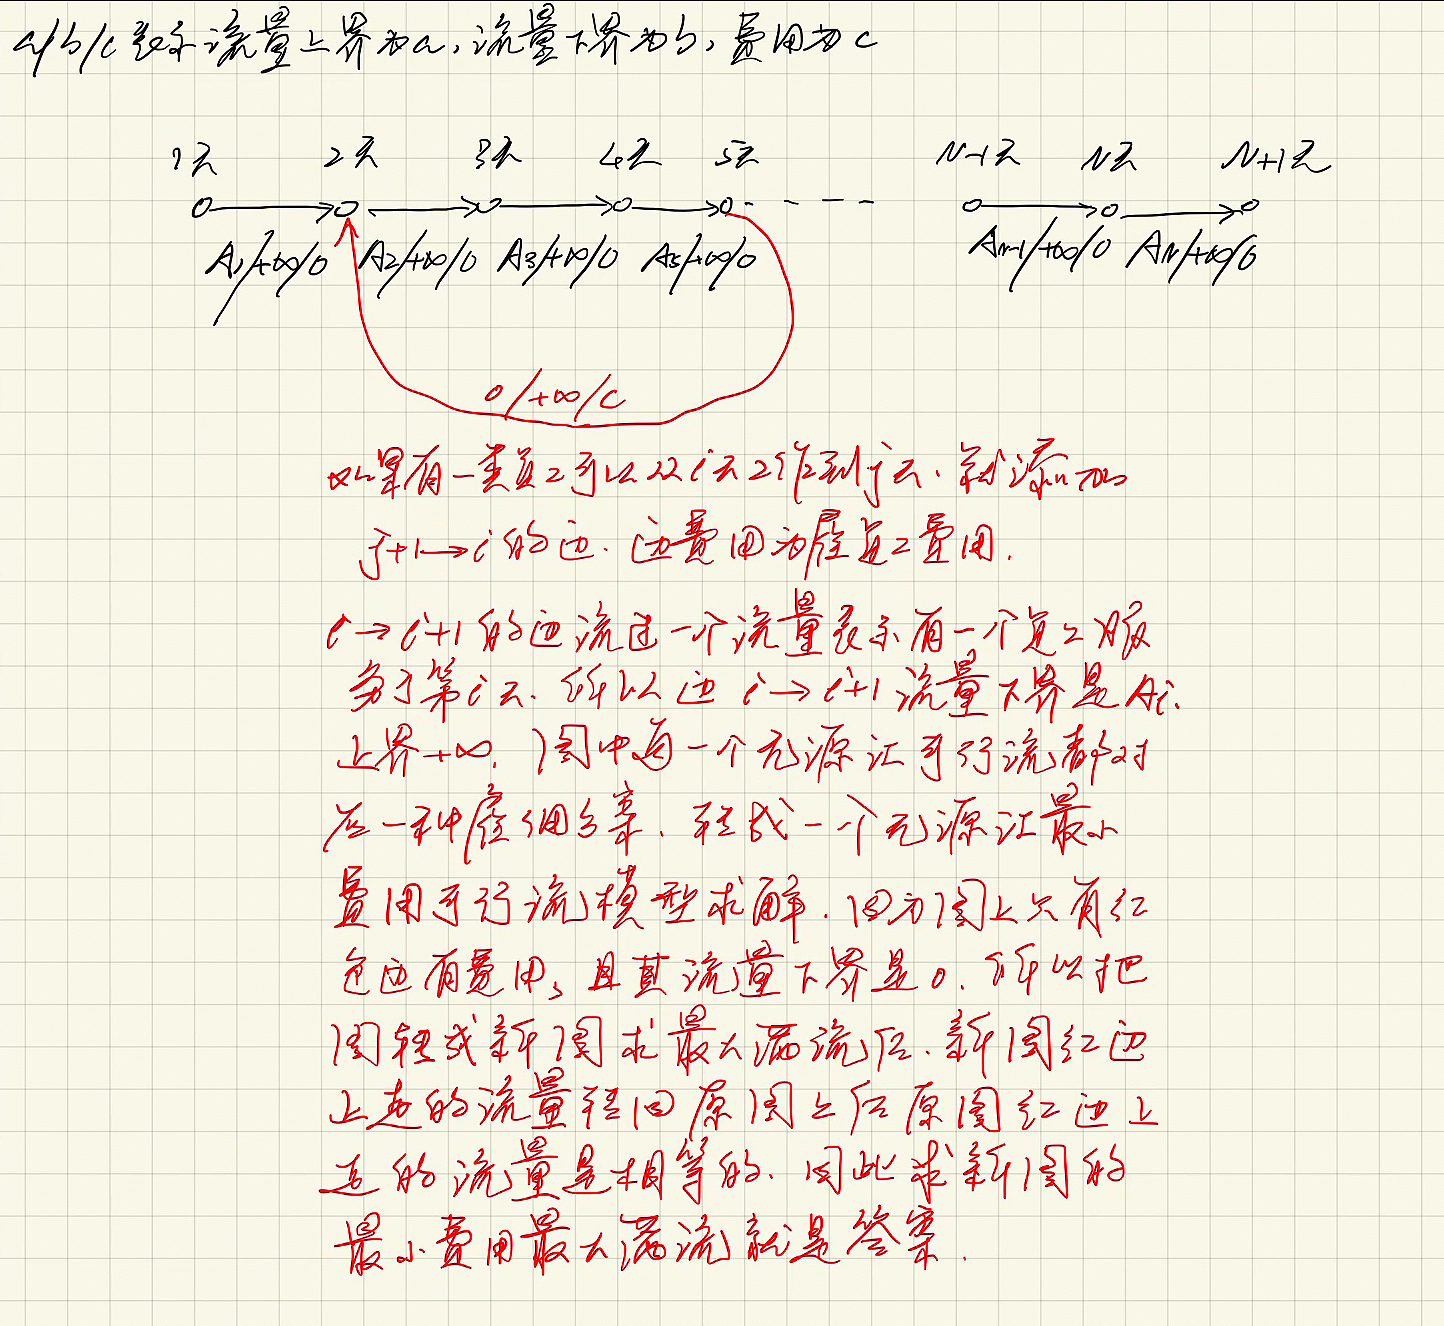 a/b/c 表示流量上界为a,流量下界为b,费用为c
1天 2天 3天 4天 5天 N-1天 N天 N+1天
A1/+∞/0 A2/+∞/0 A3/+∞/0 A5/+∞/0 AN-1/+∞/0 AN/+∞/0
0/+∞/c
如果有一类员工可以从i天工作到j天、就添加
j+1→i的边.边费用为雇员工费用.
i→i+1的边流过一个流量表示有一个员工服
务于第i天.所以边i→i+1流量下界是Ai、
上界+∞.图中每一个无源汇可行流都对
应一种雇佣方案.转成一个无源汇最小
费用可行流模型求解.因为图上只有红
色边有费用,且其流量下界是0.所以把
图转成新图求最大满流后.新图红边
上走的流量转回原图上后原图红边上
走的流量是相等的.因此求新图的
最小费用最大满流就是答案.